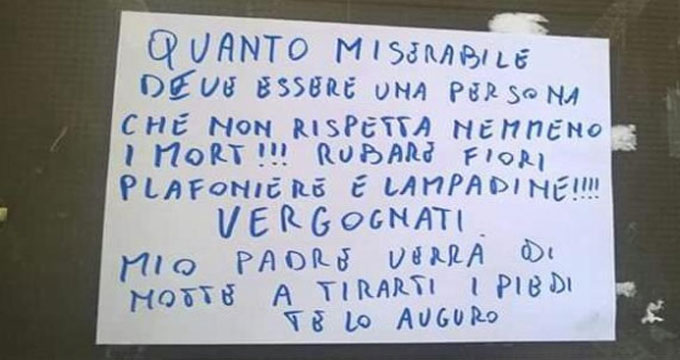 QUANTO MISERABILE
DEVE ESSERE UNA PERSONA
CHE NON RISPETTA NEMMENO
I MORT!!! RUBARE FIORI
PLAFONIERE E LAMPADINE!!!!
VERGOGNATI.
MIO PADRE VERRA DI
NOTTE A TIRARTI I PIEDI
TE LO AUGURO